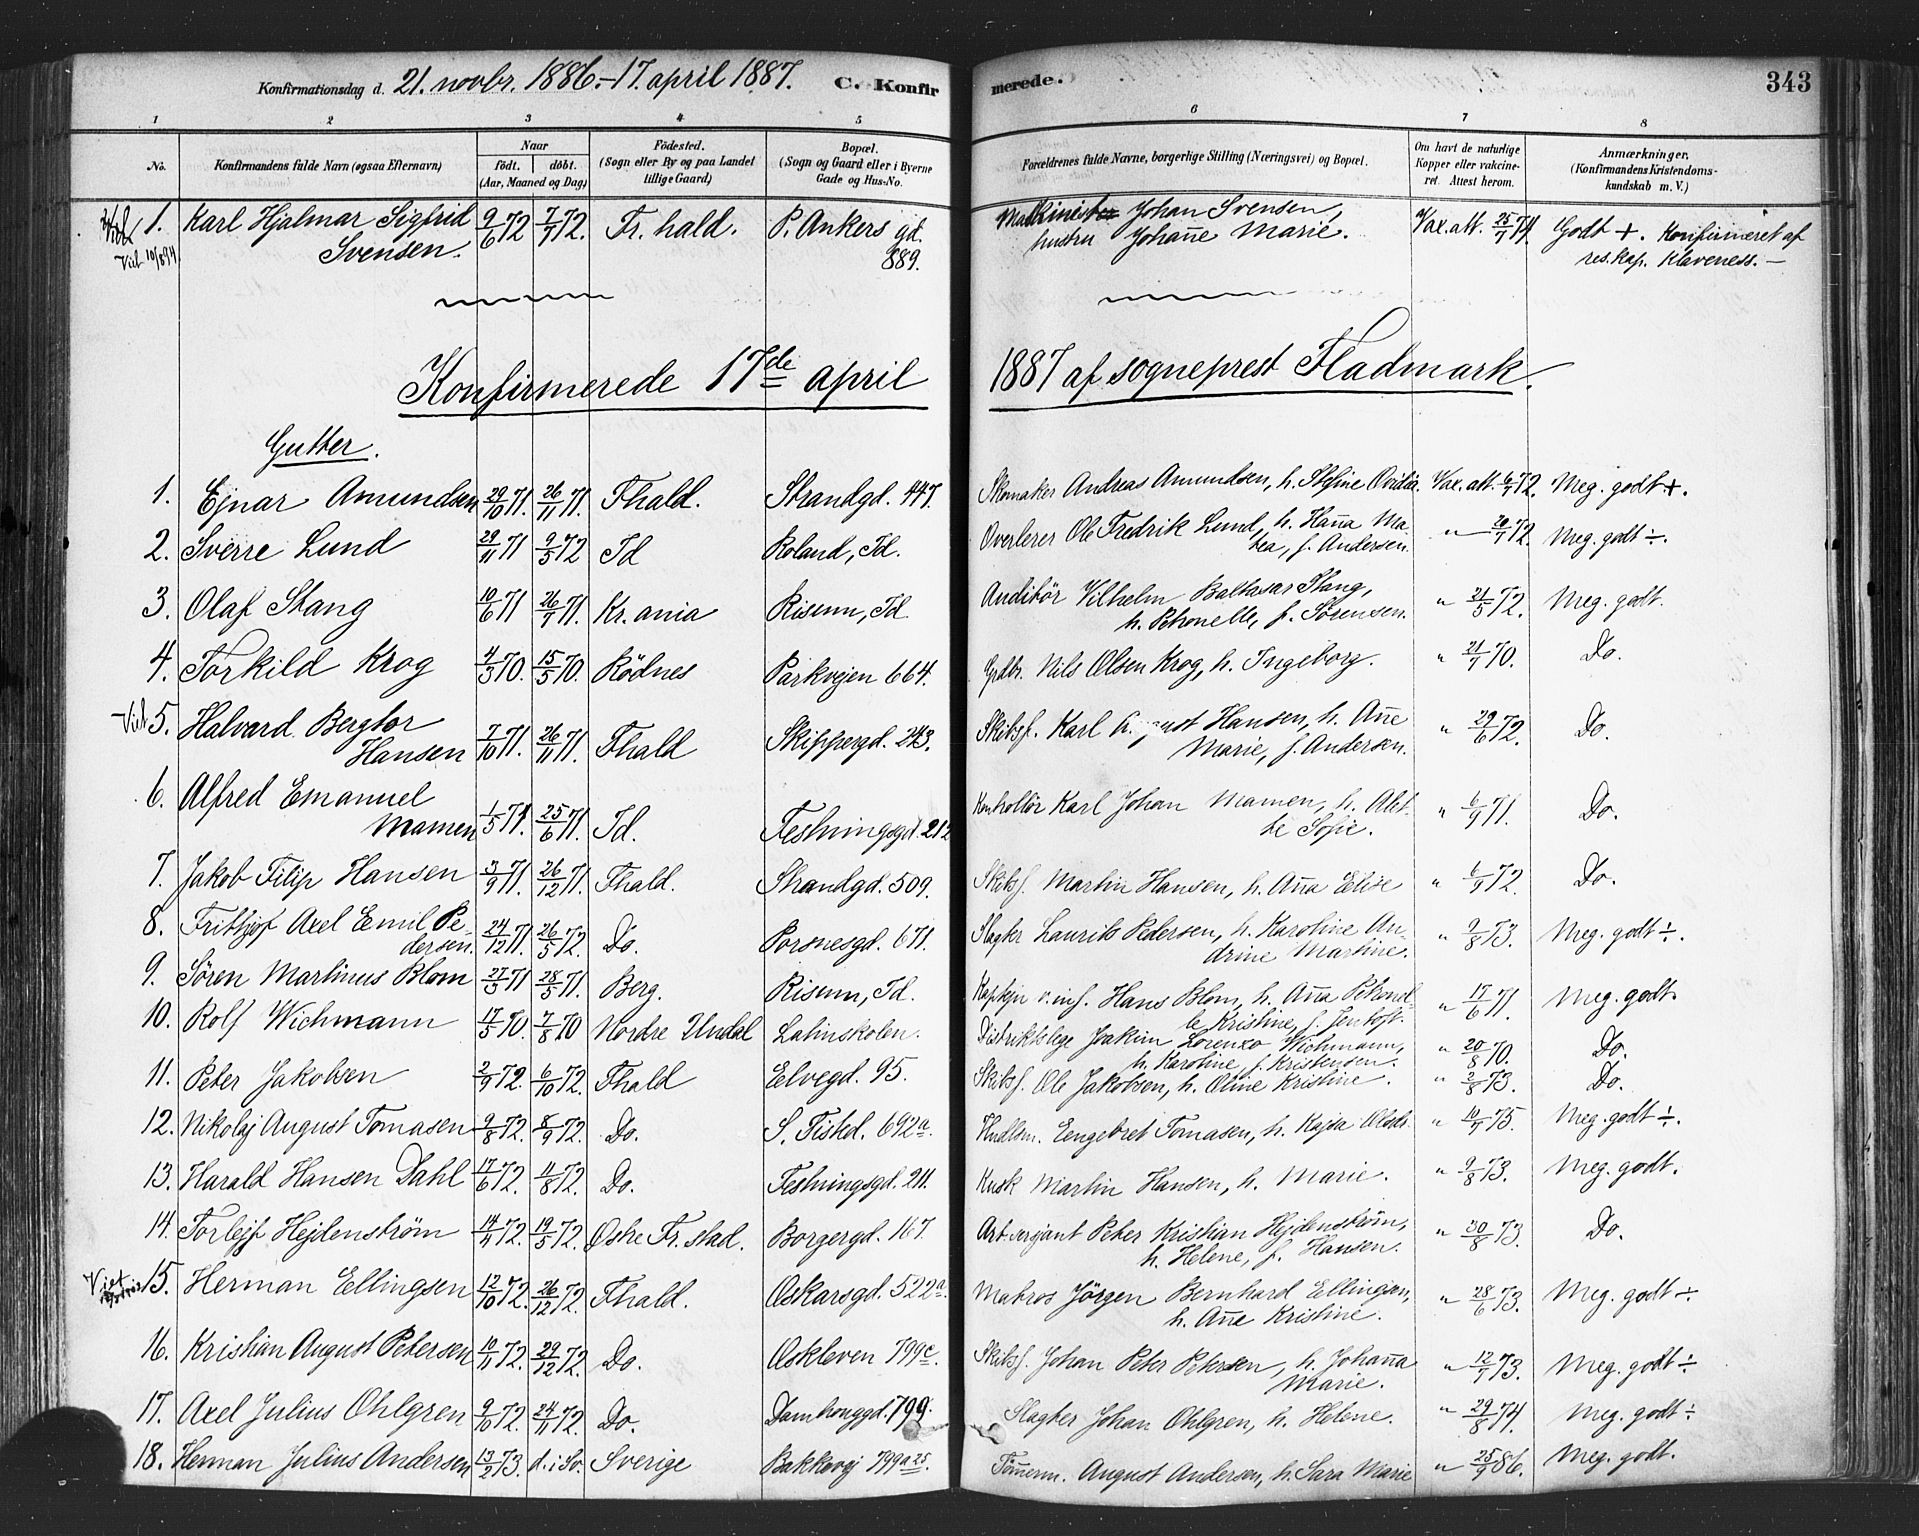 Konfirmationsdag d. 21. novbr. 1886.-17. april 1887. C. Konfir merede. 343
1 2 3 4 5 6 7 8
No. Konfirmandens fulde Navn (ogsaa Efternavn) Naar født. døbt. (Aar, Maaned og Dag) Fødested. (Sogn eller By og paa Landet tillige Gaard) Bopæl. (Sogn og Gaard eller i Byerne Gade og Hus-No. Forældrenes fulde Navne, borgerlige Stilling (Næringsvei) og Bopæl. Om havt de naturlige Kopper eller vakcineret. Attest herom. Anmærkninger. (Konfirmandens Kristendomskundskab m. V.)
1. Karl Hjalmar Sigfrid 9/6 72 7/7 72. Fr. hald. P. Ankers gd. Maskinist Johan Svensen, Vax. att. 25/7 74 Godt +. Konfirmeret af
Vid 10/8 94 Svensen. 889. hustru Johan̄e Marie. res. kap. Klaveness. —
Konfirmerede 17de april 1887 af sogneprest Fladmark.
Gutter.
1. Ejnar Amundsen 29/10 71. 26/11 71. Fhald. Strandgd. 447. Skomaker Andreas Amundsen, h. Stefine Ovidia. Vax. att. 6/7 72. Meg. godt +.
2. Sverre Lund 29/11 71 9/5 72 Id Roland, Id. Overlerer Ole Fredrik Lund, h. Han̄a Ma-
tea, f. Andersen. " 20/7 72. Meg. godt ÷.
3. Olaf Stang 10/6 71 26/7 71. Kr. ania Risum, Id Auditör Vilhelm Baltasar Stang,
h. Petronelle, f. Sörensen. " 21/5 72. Meg. godt.
4. Torkild Krog 4/3 70. 15/5 70. Rödnes Parkvejen 664. Grdbr. Nils Olsen Krog, h. Ingeborg. " 21/7 70. Do.
Vid 5. Halvard Bergtor
Hansen 7/10 71. 26/11 71. Fhald Skippergd. 243. Skibsf. Karl August Hansen, h. An̄e
Marie, f. Andersen. " 29/6 72. Do.
6. Alfred Emanuel
Mamen 1/5 71. 25/6 71. Id. Festningsgd. 212 Kontrollör Karl Johan Mamen, h. Alet-
te Sofie. " 6/9 71. Do.
7. Jakob Filip Hansen 3/9 71. 26/12 71. Fhald. Strandgd. 509. Skibsf. Martin Hansen, h. An̄a Elise " 6/9 72. Do.
8. Frithjof Axel Emil Pe-
dersen. 24/12 71. 26/5 72. Do. Porsnesgd. 671. Slagter Laurits Pedersen, h. Karoline An-
drine Martine. " 9/8 73. Meg. godt ÷.
9. Sören Martinus Blom 27/3 71 28/5 71. Berg. Risum, Id. Kaptejn v. inf. Hans Blom, h. An̄a Petronel-
le Kristine, f. Jentoft. " 17/6 71. Meg. godt.
10. Rolf Wichmann 17/5 70. 7/8 70 Nordre Undal Latinskolen. Distriktslege Joakim Lorenzo Wichmann,
h. Karoline, f. Kristensen. " 20/8 70. Do.
11. Peter Jakobsen 2/9 72. 6/10 72. Fhald Elvegd. 95. Skibsf. Ole Jakobsen, h. Oline Kristine. " 2/8 73. Do.
12. Nikolaj August Tomasen 9/8 72. 8/9 72. Do. S. Fisked. 692a. Hndlsm. Eengebret Tomasen, h. Kajsa Olsdr. " 10/7 75. Meg. godt ÷.
13. Harald Hansen Dahl 17/6 72. 11/8 72. Do. Festningsgd. 211. Kusk Martin Hansen, h. Marie. " 9/8 73. Meg. godt.
14. Torlejf Hejdenström 14/4 72. 19/5 72. Østre Fr. stad. Borgergd. 167. Art. sersjant Peter Kristian Hejdenström,
h. Helene, f. Hansen. " 30/8 73. Do.
Vid 15. Herman Ellingsen 12/10 72. 26/12 72. Fhald. Oskarsgd. 522a. Matros Jörgen Bernhard Ellingsen,
h. An̄e Kristine. " 28/6 73. Meg. godt ÷
16. Kristian August Petersen 10/11 72. 29/12 72. Do. Oskleven 799c. Skibsf. Johan Peter Petersen, h. Johan̄a
Marie. " 12/7 73. Meg. godt ÷
17. Axel Julius Ohlgren 9/10 72. 24/11 72. Do. Damhauggd. 799. Slagter Johan Ohlgren, h. Helene. " 29/8 74. Meg. godt ÷
18. Herman Julius Andersen 13/2 73. d. i Sv. Sverige Bakkevej 799a 25. Töm̄erm. August Andersen, h. Sara Marie " 25/9 86. Meg. godt.